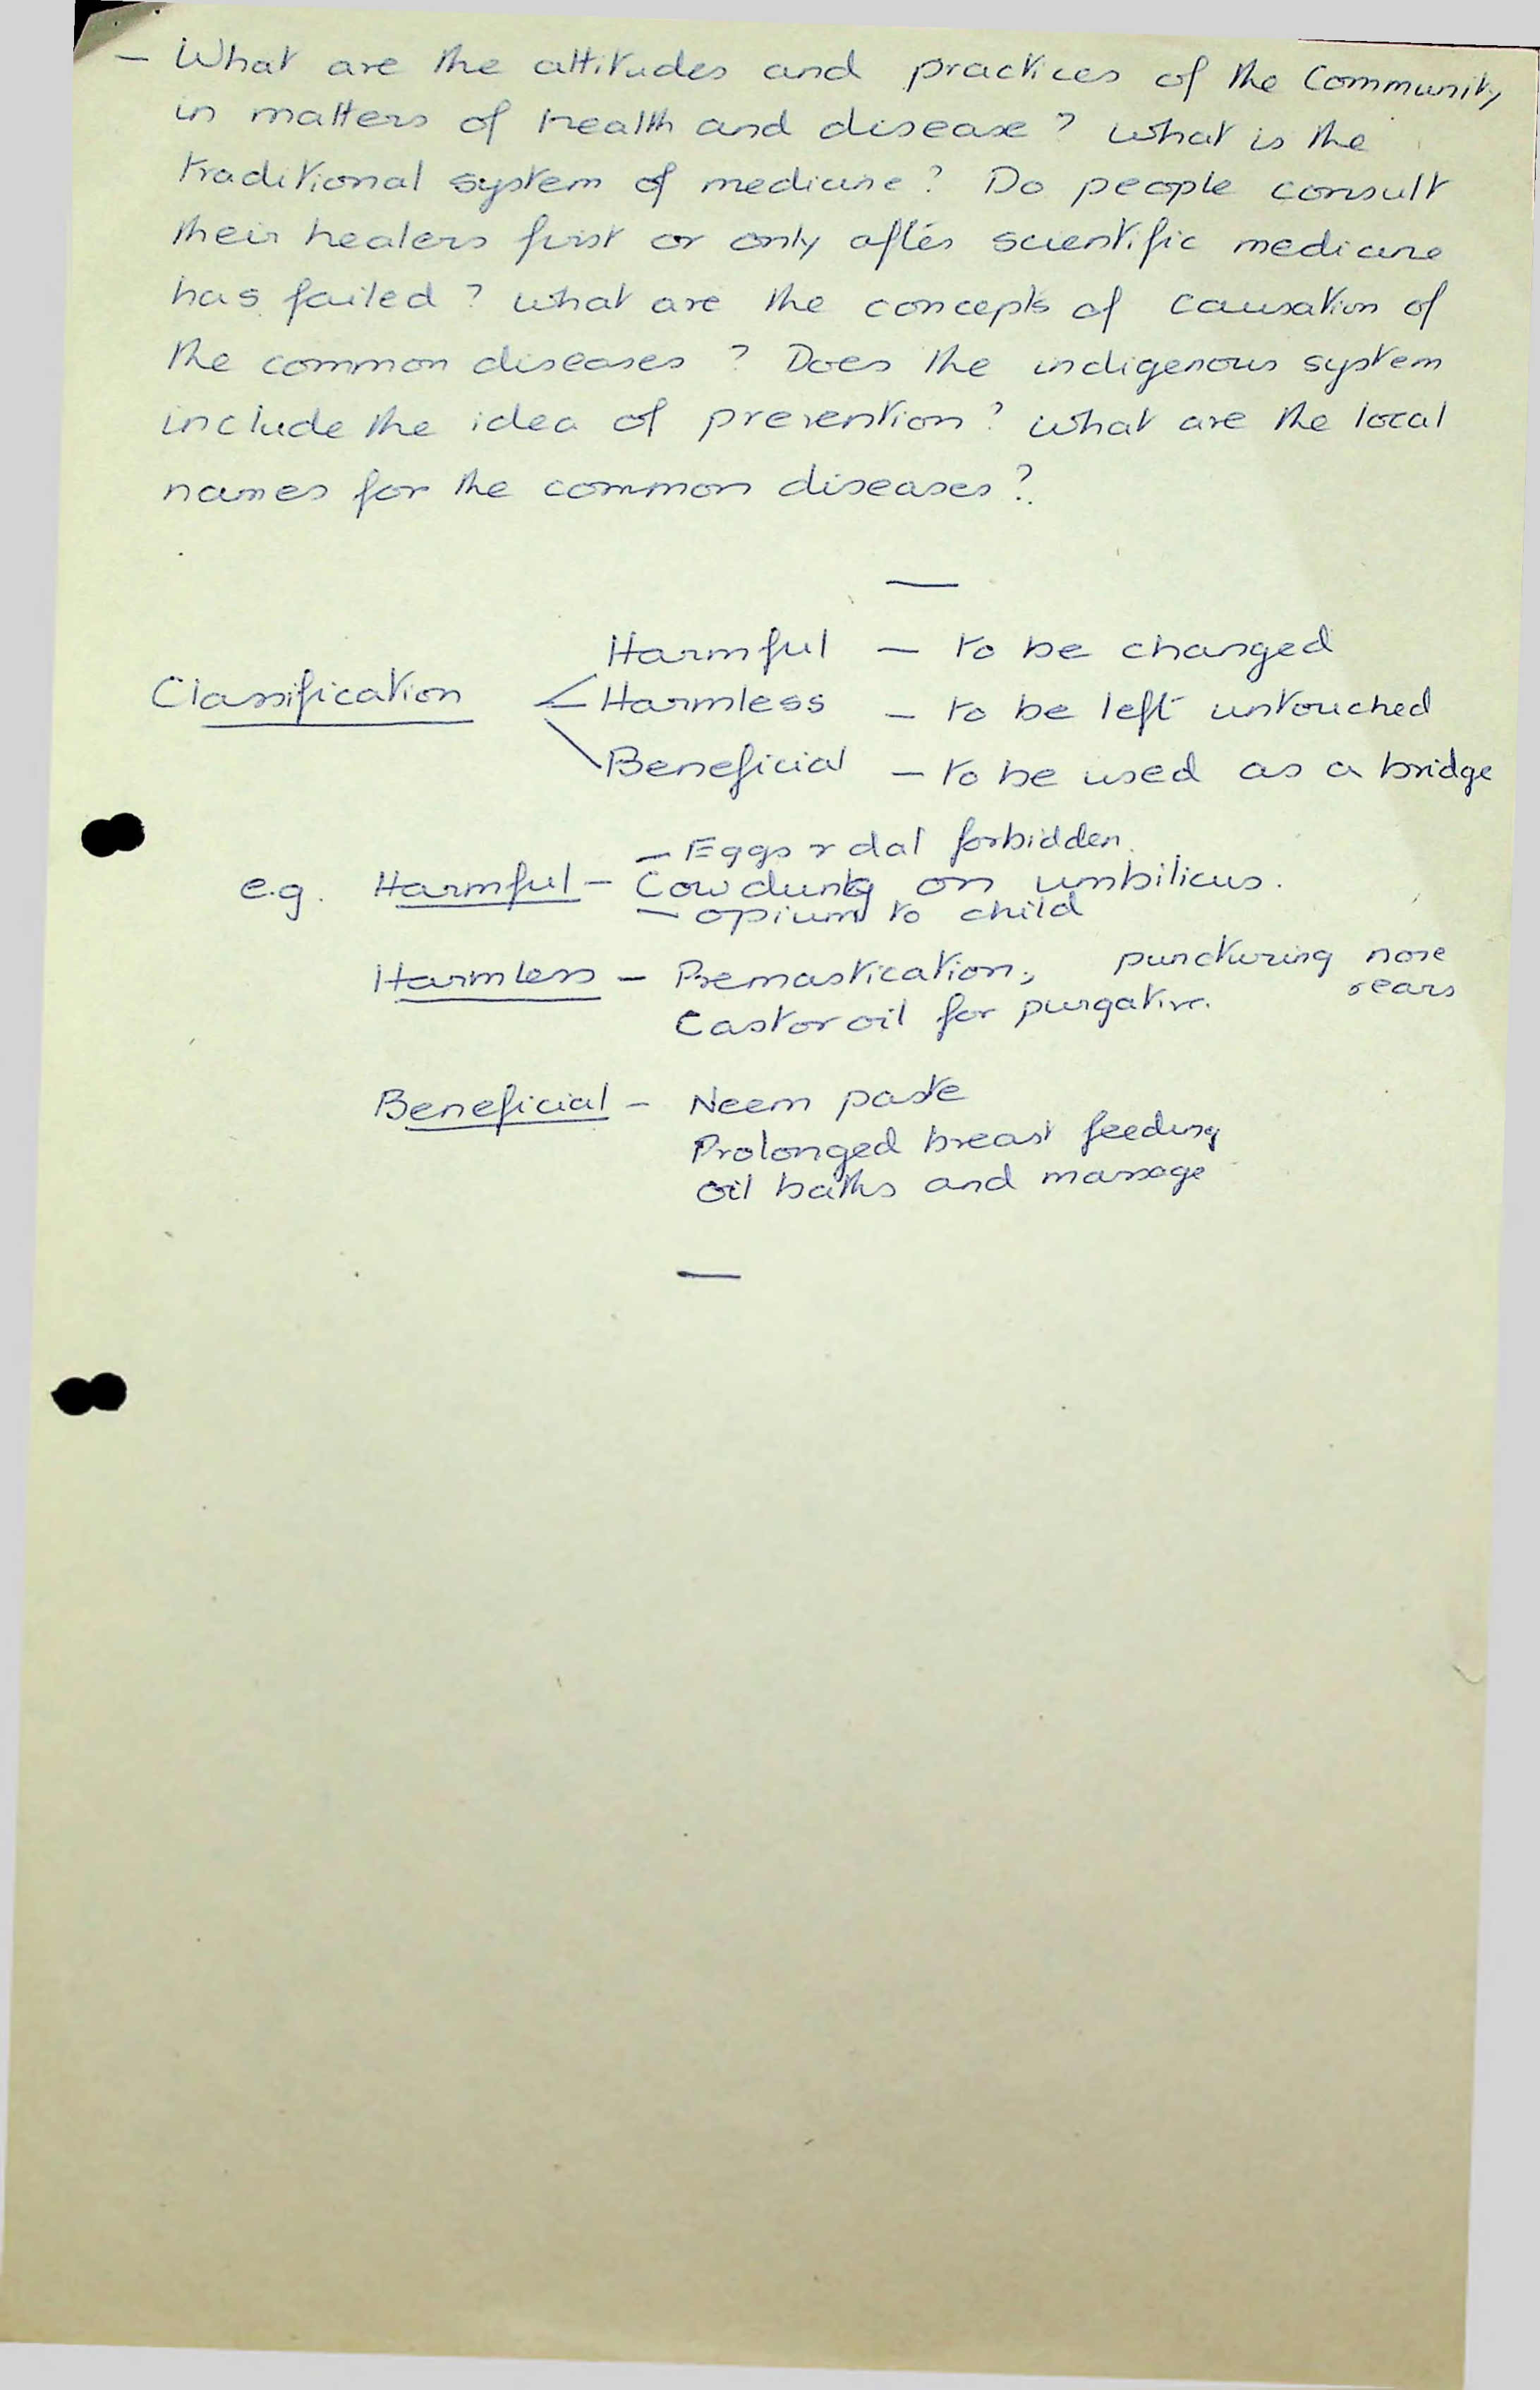 — What are the attitudes and practices of the Community
in matters of health and disease? What is the
traditional system of medicine? Do people consult
their healers first or only after scientific medicine
has failed? What are the concepts of causation of
the common diseases? Does the indigenous system
include the idea of prevention? What are the local
names for the common diseases?
—
Harmful — to be changed
Classification < Harmless — to be left untouched
Beneficial — to be used as a bridge
— Eggs & dal forbidden.
e.g. Harmful — Cowdung on umbilicus.
— opium to child
Harmless — Premastication, puncturing nose
& ears
Castor oil for purgative.
Beneficial — Neem paste
Prolonged breast feeding
Oil baths and massage
—